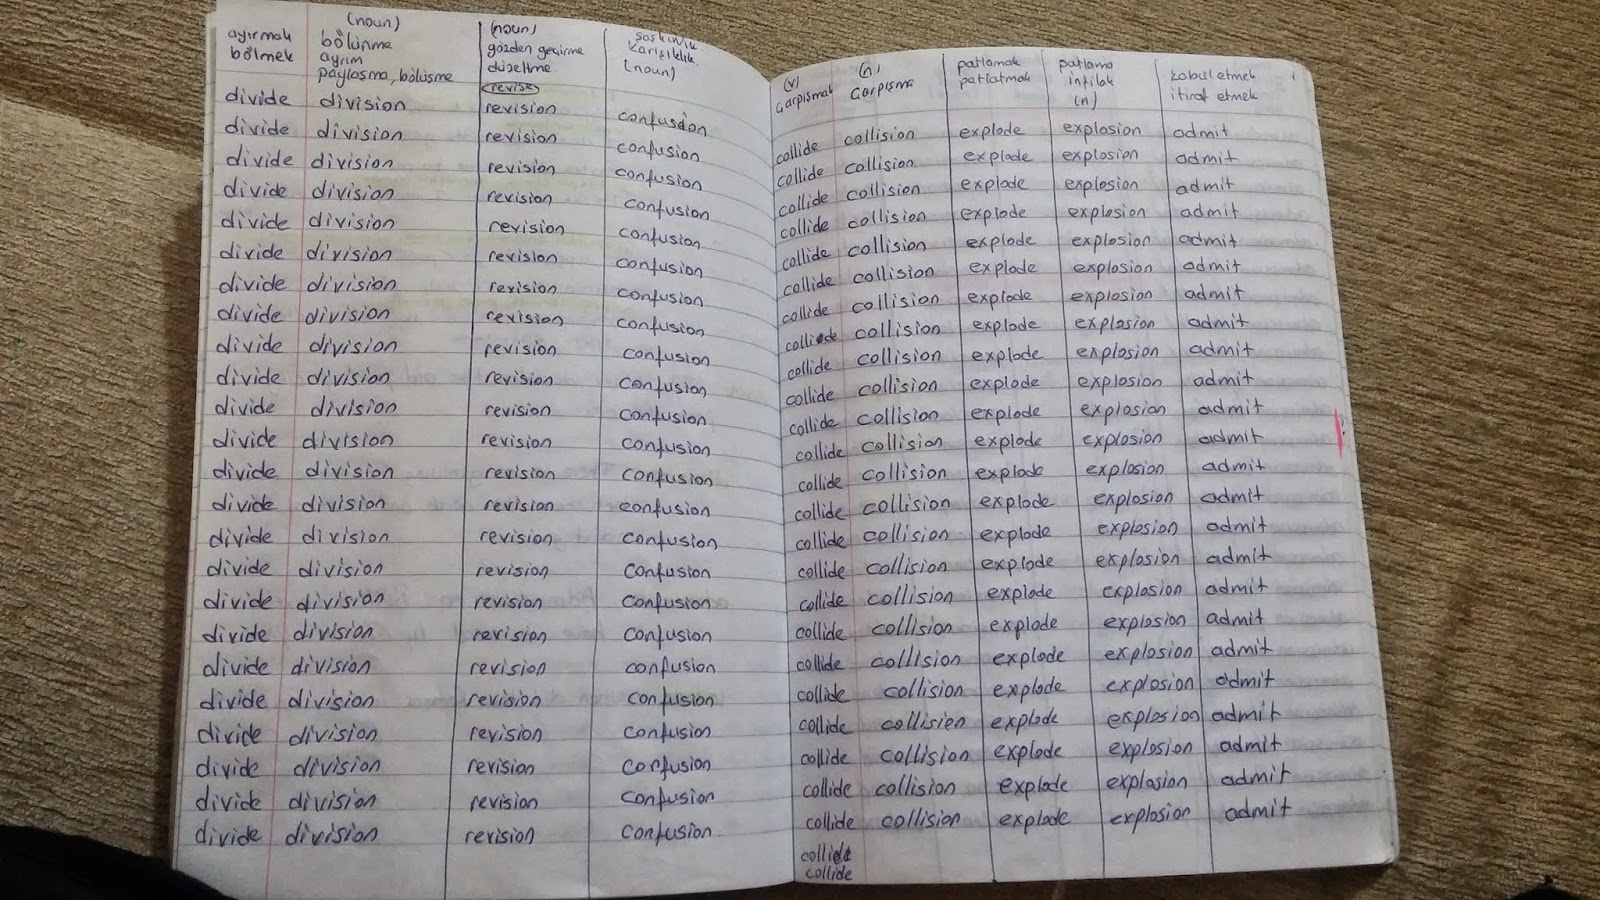 ayırmak (noun) (noun) şaşkınlık
bölmek bölünme gözden geçirme karışıklık
ayrım düzeltme (noun)
paylaşma, bölüşme revise
divide division revision confusion
divide division revision confusion
divide division revision confusion
divide division revision confusion
divide division revision confusion
divide division revision confusion
divide division revision confusion
divide division revision confusion
divide division revision confusion
divide division revision confusion
divide division revision confusion
divide division revision confusion
divide division revision confusion
divide division revision confusion
divide division revision confusion
divide division revision confusion
divide division revision confusion
divide division revision confusion
divide division revision confusion
divide division revision confusion
divide division revision confusion
divide division revision confusion
divide division revision confusion
divide division revision confusion
(v) (n) patlamak patlama kabul etmek
çarpışmak çarpışma patlatmak infilak itiraf etmek
(n)
collide collision explode explosion admit
collide collision explode explosion admit
collide collision explode explosion admit
collide collision explode explosion admit
collide collision explode explosion admit
collide collision explode explosion admit
collide collision explode explosion admit
collide collision explode explosion admit
collide collision explode explosion admit
collide collision explode explosion admit
collide collision explode explosion admit
collide collision explode explosion admit
collide collision explode explosion admit
collide collision explode explosion admit
collide collision explode explosion admit
collide collision explode explosion admit
collide collision explode explosion admit
collide collision explode explosion admit
collide collision explode explosion admit
collide collision explode explosion admit
collide collision explode explosion admit
collide collision explode explosion admit
collide collision explode explosion admit
collide collision explode explosion admit
collide
collide